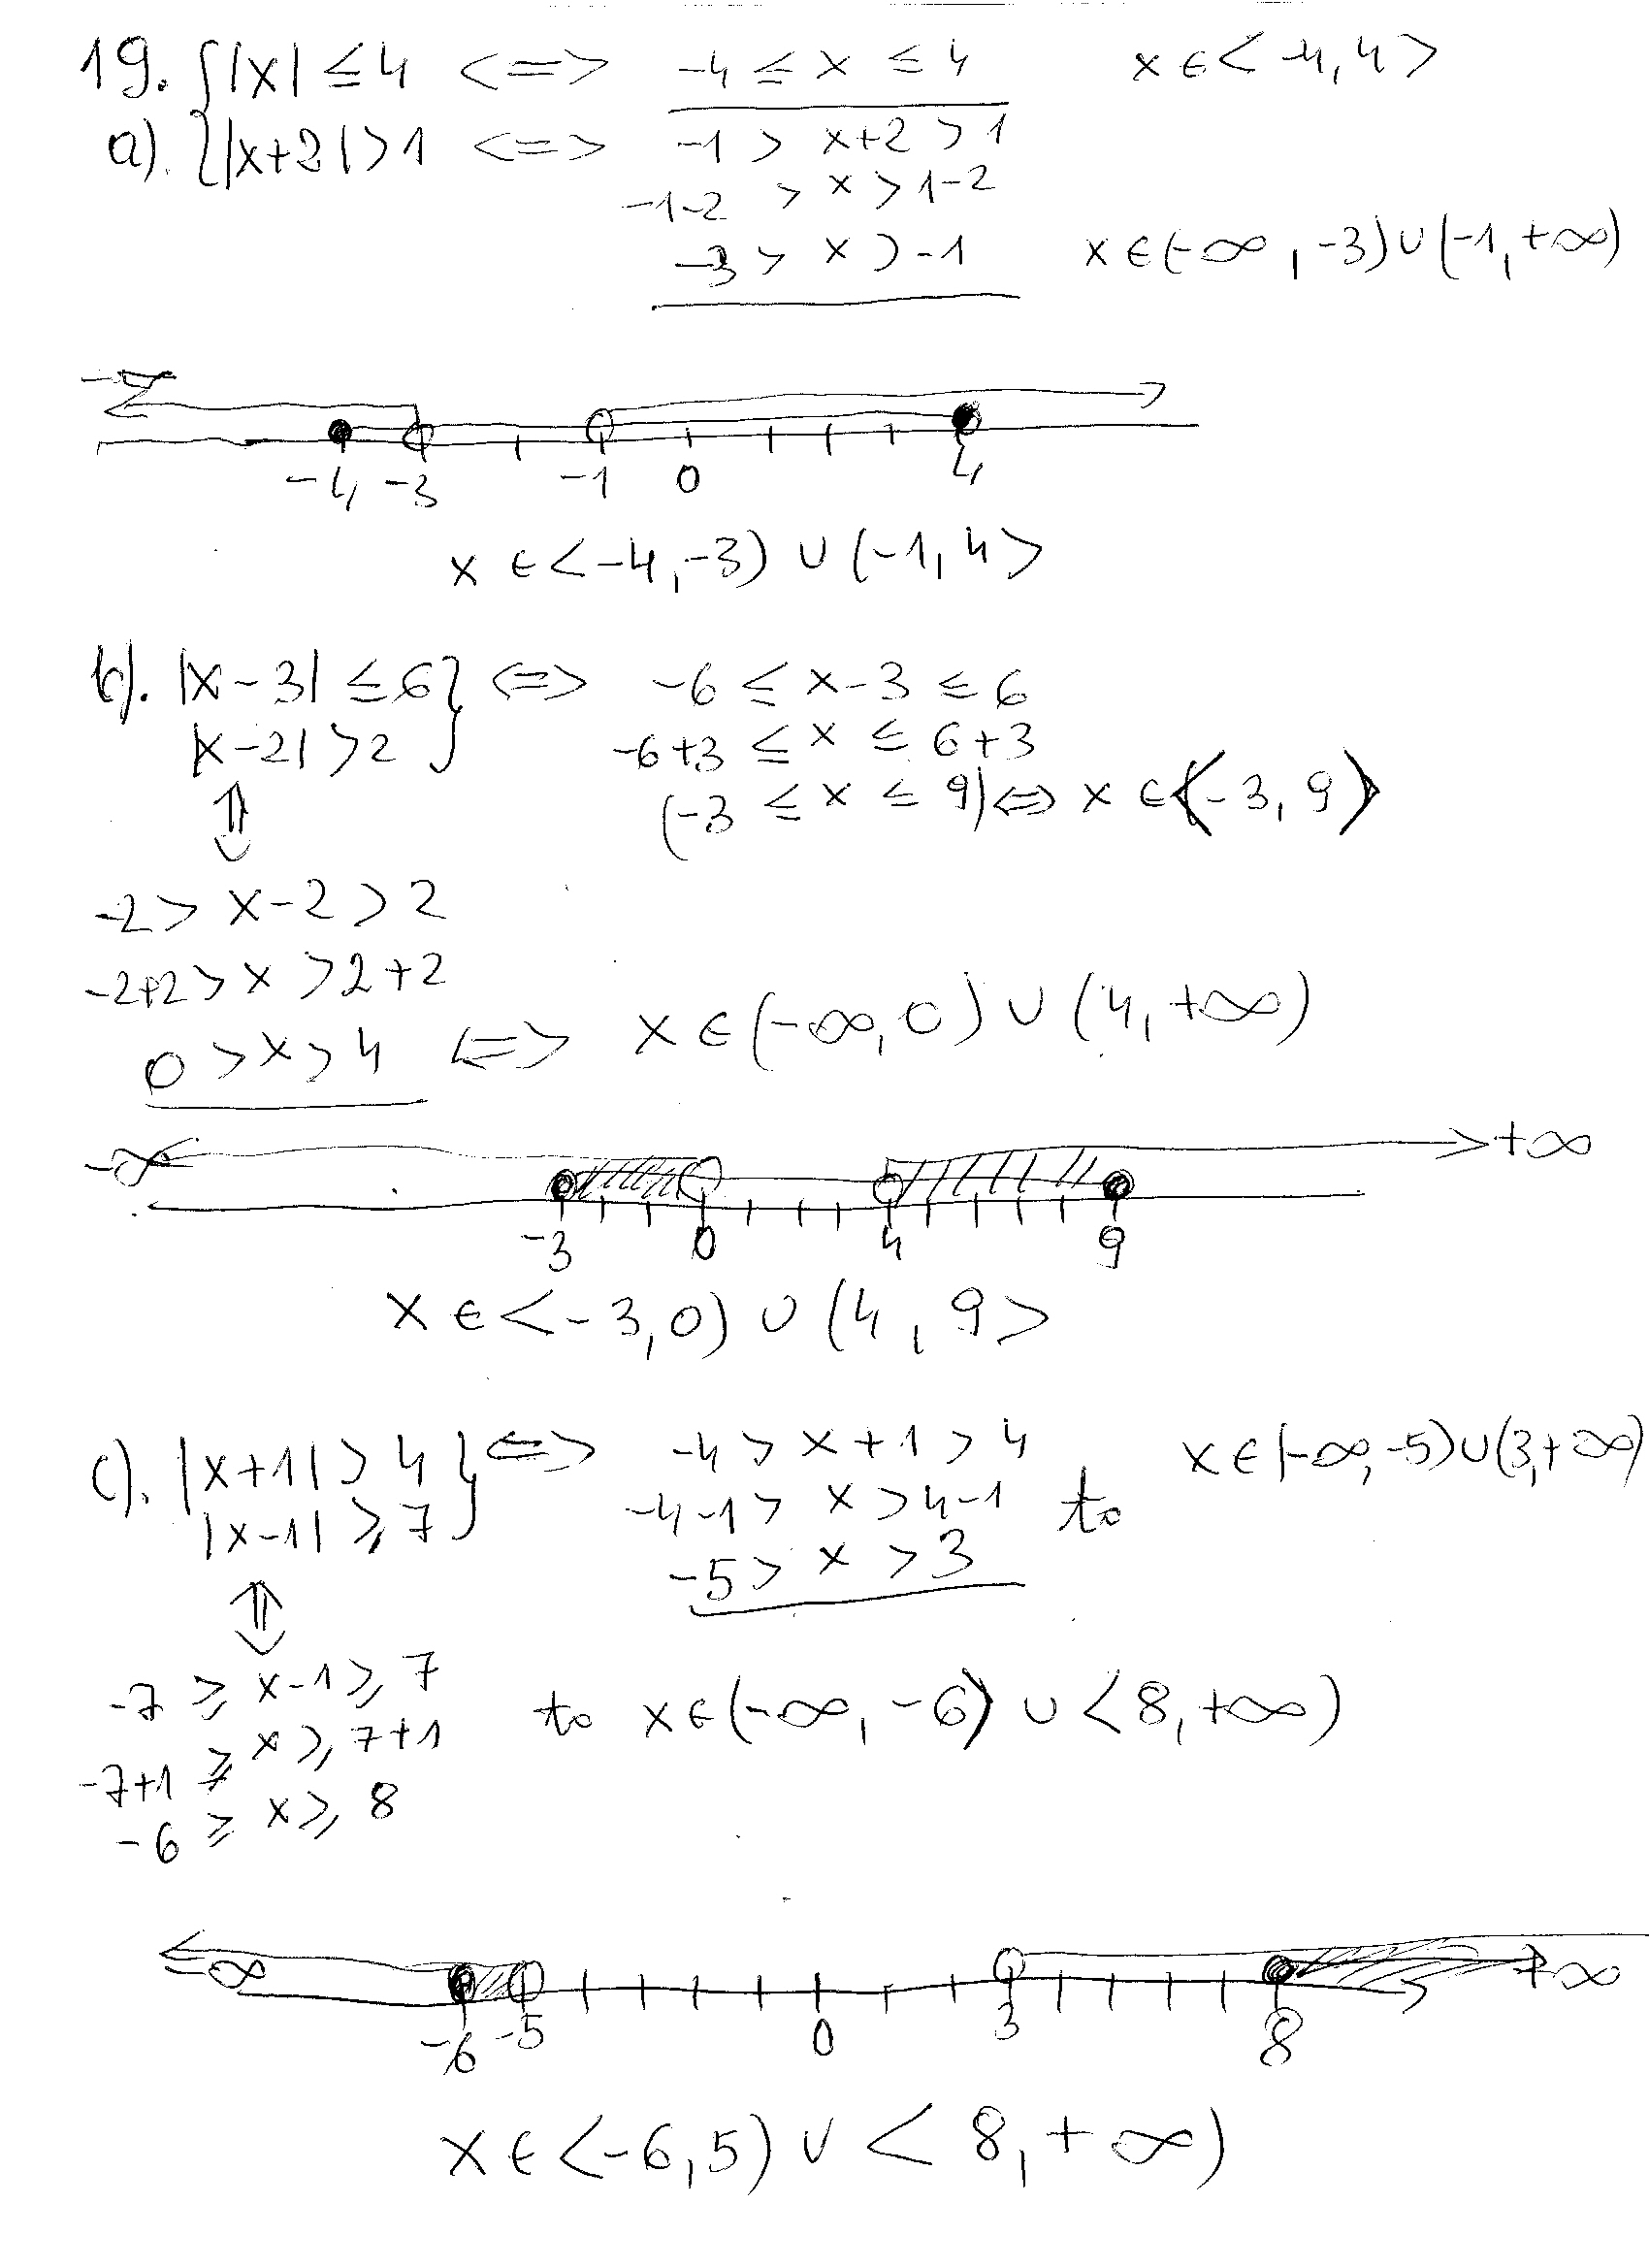 19. { |x| ≤ 4 <=> -4 ≤ x ≤ 4 x ∈ < -4, 4 >
a). { |x+2| > 1 <=> -1 > x+2 > 1
-1-2 > x > 1-2
-3 > x > -1 x ∈ (-∞, -3) ∪ (-1, +∞)
-∞
-4 -3 -1 0 4
x ∈ < -4, -3) ∪ (-1, 4 >
b). |x-3| ≤ 6 } <=> -6 ≤ x-3 ≤ 6
|x-2| > 2 } -6+3 ≤ x ≤ 6+3
⇕ (-3 ≤ x ≤ 9) <=> x ∈ < -3, 9 >
-2 > x-2 > 2
-2+2 > x > 2+2
0 > x > 4 <=> x ∈ (-∞, 0) ∪ (4, +∞)
-∞ +∞
-3 0 4 9
x ∈ < -3, 0) ∪ (4, 9 >
c). |x+1| > 4 } <=> -4 > x+1 > 4 x ∈ (-∞, -5) ∪ (3, +∞)
|x-1| ≥ 7 } -4-1 > x > 4-1 to
-5 > x > 3
⇕
-7 ≥ x-1 ≥ 7 to x ∈ (-∞, -6> ∪ < 8, +∞)
-7+1 ≥ x ≥ 7+1
-6 ≥ x ≥ 8
-∞ +∞
-6 -5 0 3 8
x ∈ < -6, 5) ∪ < 8, +∞)